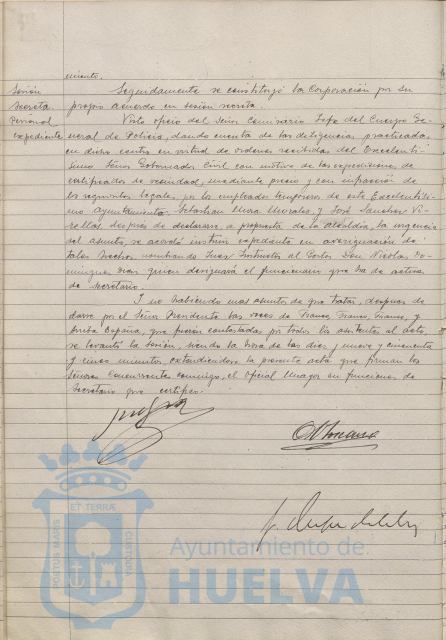 miento.
Sesión Seguidamente se constituyó la Corporación por su
Secreta propio acuerdo en sesión secreta.
Personal Visto oficio del Señor Comisario Jefe del Cuerpo Ge-
expediente neral de Policía, dando cuenta de las diligencias practicadas
en dicho centro en virtud de ordenes recibidas del Excelentí-
simo Señor Gobernador Civil con motivo de las expediciones de
certificados de vecindad, mediante precio y con infracción de
los reglamentos legales, por los empleados temporeros de este Excelentísi-
mo ayuntamiento Sebastian Mora Morales y José Sanchez Vi-
rellas, después de declararse, a propuesta de la alcaldía, la urgencia
del asunto, se acordó instruir expediente en averiguación de
tales hechos, nombrando Juez Instructor al Gestor Don Nicolas Do-
minguez Diaz quien designará el funcionario que ha de actuar
de Secretario.
Y no habiendo mas asuntos de que tratar, después de
darse por el Señor Presidente las voces de Franco, Franco, Franco, y
Arriba España, que fueron contestadas por todos los asistentes al acto,
se levantó la sesión, siendo la hora de las diez y nueve y cincuenta
y cinco minutos, extendiéndose la presente acta que firman los
Señores Concurrentes conmigo, el Oficial Mayor en funciones de
Secretario que certifico.
PORTUS MARIS ET TERRÆ CUSTODIA
Ayuntamiento de
HUELVA